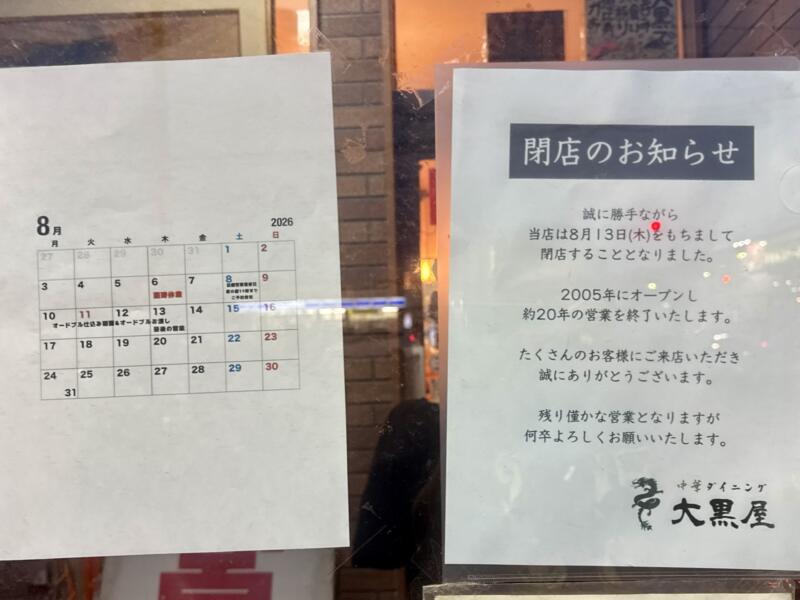 8月 2026
月 火 水 木 金 土 日
27 28 29 30 31 1 2
3 4 5 6 7 8 9
臨時休業
ご予約のみ
10 11 12 13 14 15 16
オードブル仕込み期間&オードブルお渡し
最後の営業
17 18 19 20 21 22 23
24 25 26 27 28 29 30
31
閉店のお知らせ
誠に勝手ながら
当店は8月13日(木)をもちまして
閉店することとなりました。
2005年にオープンし
約20年の営業を終了いたします。
たくさんのお客様にご来店いただき
誠にありがとうございます。
残り僅かな営業となりますが
何卒よろしくお願いいたします。
中華ダイニング
大黒屋